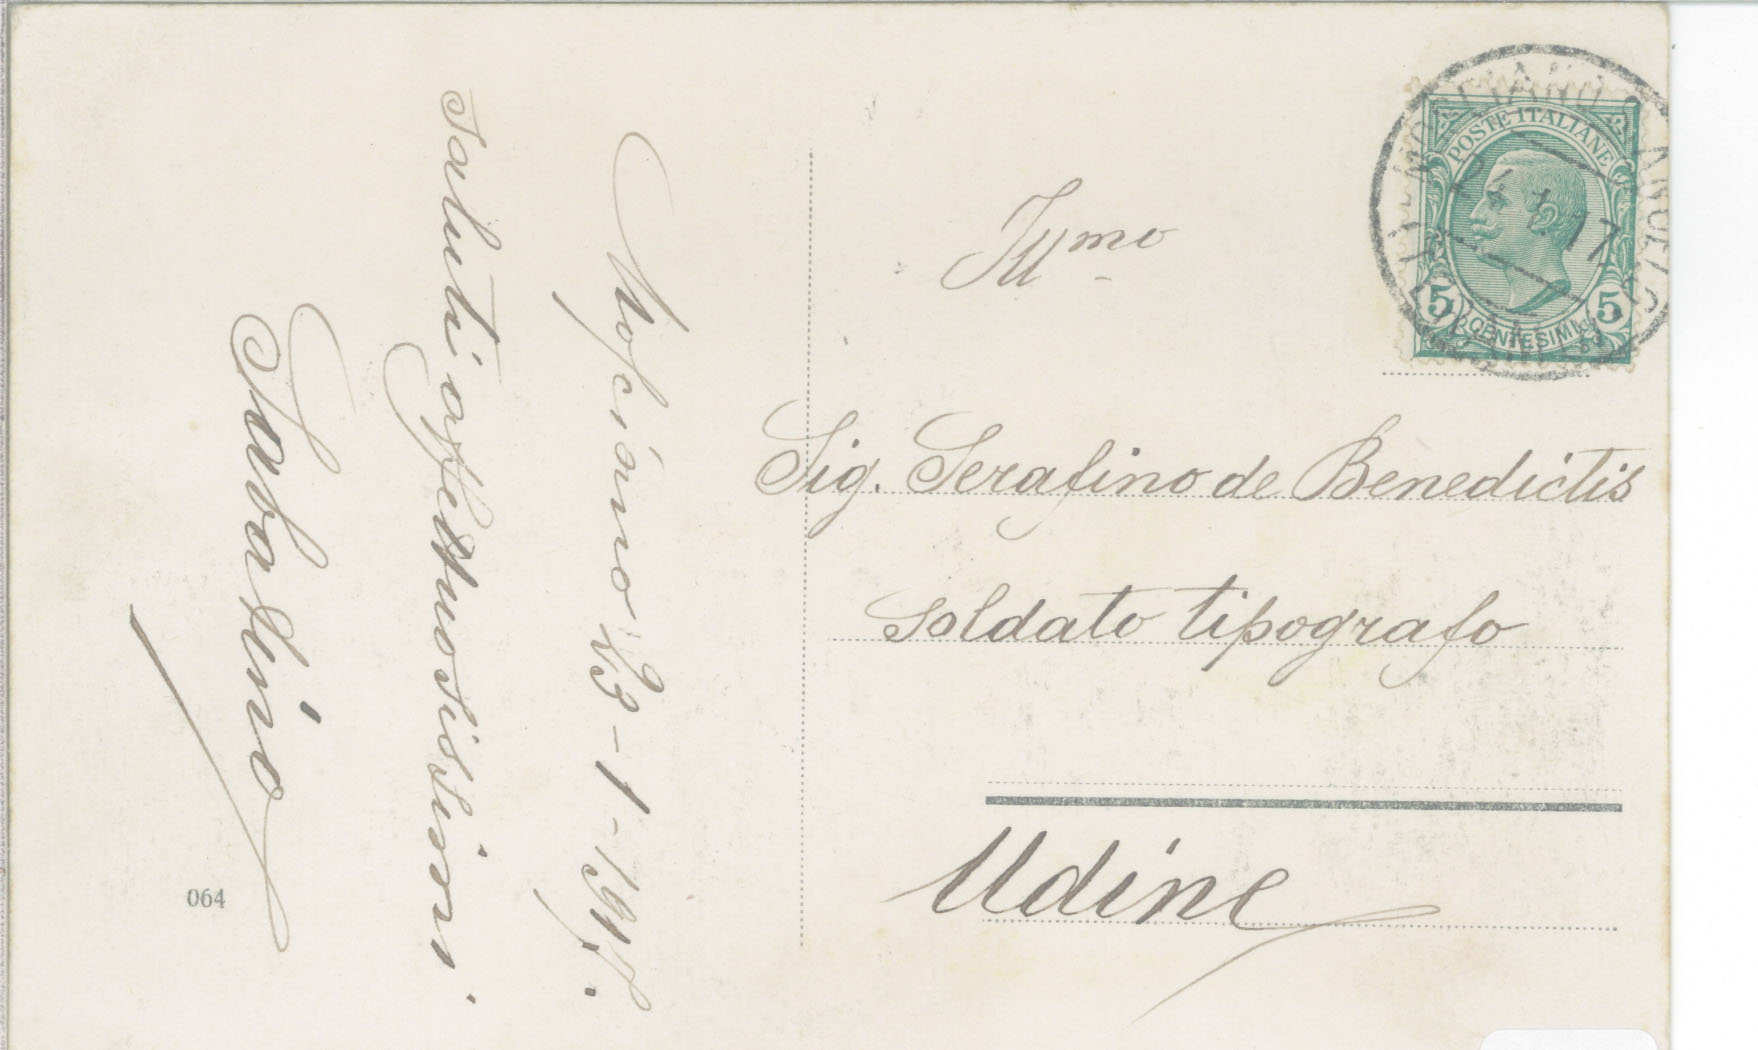 Mosciano 23-1-1917.
Saluti affettuosissimi
Sabatino
064
POSTE ITALIANE
5 CENTESIMI 5
Ill mo
Sig. Serafino de Benedictis
Soldato tipografo
Udine